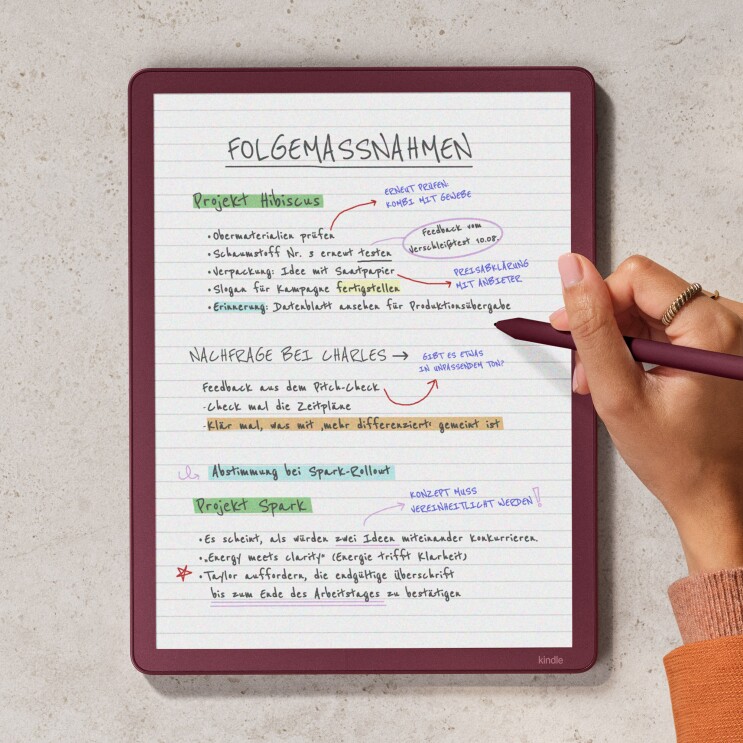 FOLGEMASSNAHMEN
Projekt Hibiscus
ERNEUT PRÜFEN:
KOMBI MIT GEWEBE
• Obermaterialien prüfen
Feedback vom
Verschleißtest 10.08.
• Schaumstoff Nr. 3 erneut testen
• Verpackung: Idee mit Saatpapier
PREISABKLÄRUNG
MIT ANBIETER
• Slogan für Kampagne fertigstellen
• Erinnerung: Datenblatt ansehen für Produktionsübergabe
NACHFRAGE BEI CHARLES →
GIBT ES ETWAS
IN UNPASSENDEM TON?
Feedback aus dem Pitch-Check
-Check mal die Zeitpläne
-Klär mal, was mit ‚mehr differenziert' gemeint ist
Abstimmung bei Spark-Rollout
Projekt Spark
KONZEPT MUSS
VEREINHEITLICHT WERDEN!
• Es scheint, als würden zwei Ideen miteinander konkurrieren.
• „Energy meets clarity" (Energie trifft Klarheit)
• Taylor auffordern, die endgültige Überschrift
bis zum Ende des Arbeitstages zu bestätigen
kindle